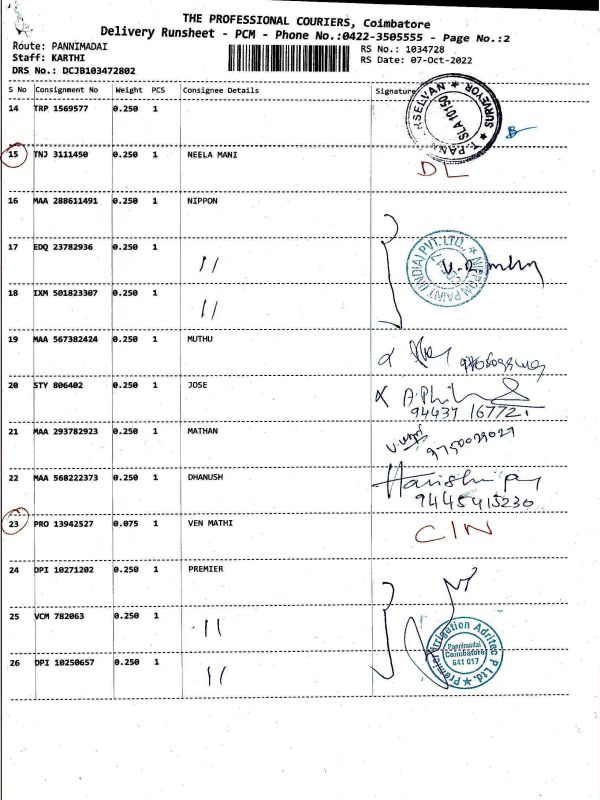 THE PROFESSIONAL COURIERS, Coimbatore
Delivery Runsheet - PCM - Phone No.:0422-3505555 - Page No.:2
Route: PANNIMADAI
RS No.: 1034728
Staff: KARTHI
RS Date: 07-Oct-2022
DRS No.: DCJB103472802
S No Consignment No Weight PCS Consignee Details Signature
14 TRP 1569577 0.250 1
SURVEYOR ★ SLA 10150 ★
15 TNJ 3111450 0.250 1 NEELA MANI DL
16 MAA 288611491 0.250 1 NIPPON
17 EDQ 23782936 0.250 1 〃
NIPPON PAINT (INDIA) PVT. LTD.
18 IXM 501823307 0.250 1 〃
19 MAA 567382424 0.250 1 MUTHU
20 STY 806402 0.250 1 JOSE
94437 16772
21 MAA 293782923 0.250 1 MATHAN
22 MAA 568222373 0.250 1 DHANUSH
9445415230
23 PRO 13942527 0.075 1 VEN MATHI CIN
24 DPI 10271202 0.250 1 PREMIER
25 VCM 782063 0.250 1 〃
Premier Irrigation Adritec P Ltd. ★
Pannimadai
Coimbatore
641 017
26 DPI 10250657 0.250 1 〃